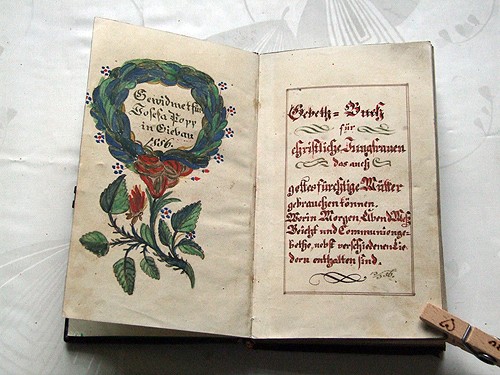 Gewidmet für
Josefa Popp
in Girbau
1856.
Gebeth-Buch
für
christliche Jungfrauen
das auch
gottesfürchtige Mütter
gebrauchen können.
Worin Morgen, Abend Meß
Beicht und Communionge-
bethe, nebst verschiedenen Lie-
dern enthalten sind.
1856.